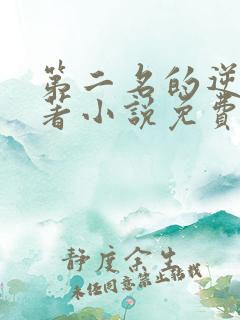 第二名的逆
着小說免費
静度余生
未经同意禁止转载